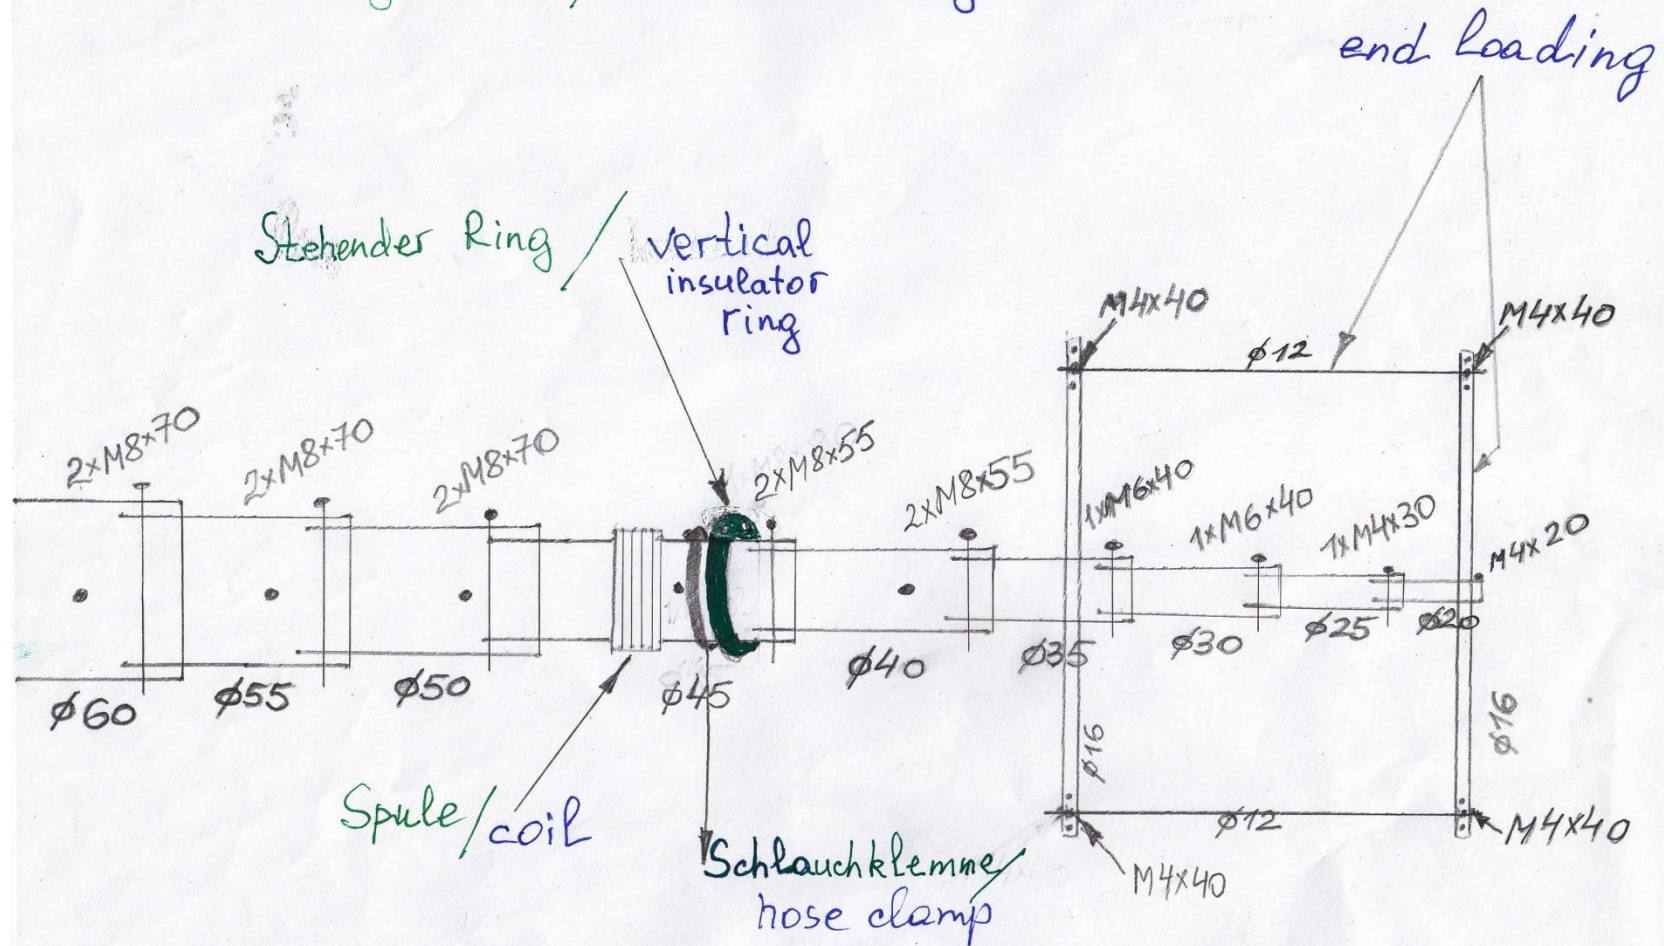 end loading
Stehender Ring / vertical
insulator
ring
M4x40
M4x40
ø12
2xM8x70
2xM8x70
2xM8x70
2xM8x55
2xM8x55
1xM6x40
1xM6x40
1xM4x30
M4x20
ø60
ø55
ø50
ø45
ø40
ø35
ø30
ø25
ø20
ø16
ø16
Spule / coil
ø12
M4x40
M4x40
Schlauchklemme /
hose clamp